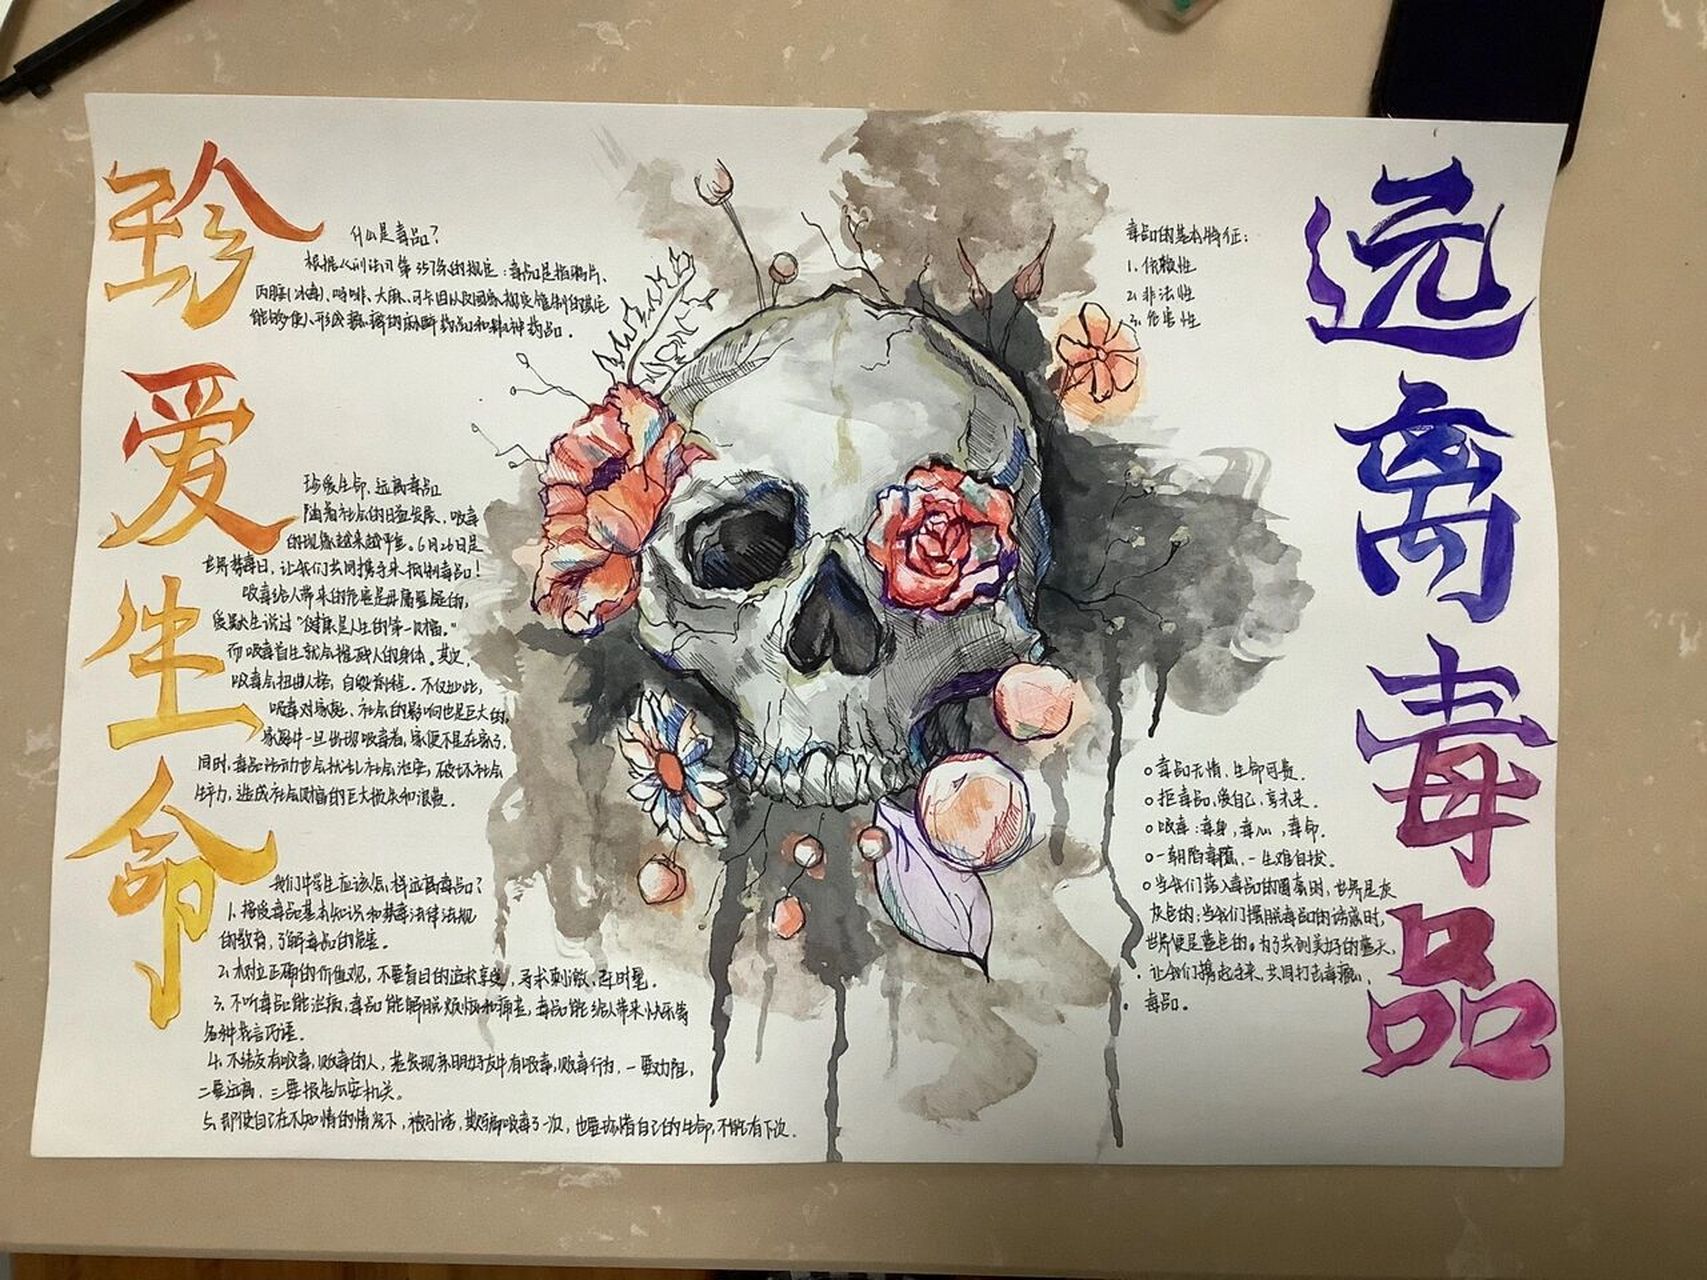 珍爱生命
什么是毒品?
根据《刑法》第357条的规定:毒品是指鸦片、
丙胺(冰毒)、吗啡、大麻、可卡因以及国家规定管制的其它
能够使人形成瘾癖的麻醉药品和精神药品。
珍爱生命,远离毒品
随着社会的日益发展,吸毒
的现象越来越严重。6月26日是
世界禁毒日,让我们共同携手来抵制毒品!
吸毒给人带来的危害是毋庸置疑的,
爱默生说过"健康是人生的第一财富。"
而吸毒首先就会摧残人的身体。其次,
吸毒会扭曲人格,自毁前程。不仅如此,
吸毒对家庭、社会的影响也是巨大的,
家庭中一旦出现吸毒者,家便不是在家了,
同时,毒品活动也会扰乱社会治安,破坏社会
生产力,造成社会财富的巨大损失和浪费。
我们中学生应该怎样远离毒品?
1、接受毒品基本知识和禁毒法律法规
的教育,了解毒品的危害。
2、树立正确的价值观,不要盲目的追求享受,寻求刺激,赶时髦。
3、不听毒品能治病,毒品能解脱烦恼和痛苦,毒品能给人带来快乐等
各种花言巧语。
4、不结交有吸毒,贩毒的人,若发现亲朋好友中有吸毒,贩毒行为,一要劝阻,
二要远离,三要报告公安机关。
5、即使自己在不知情的情况下,被引诱,欺骗吸毒了一次,也要珍惜自己的生命,不能有下次.
毒品的基本特征:
1、依赖性
2、非法性
3、危害性
毒品无情,生命可贵.
拒毒品,爱自己,享未来.
吸毒:毒身,毒心,毒命.
一朝陷毒瘾,一生难自拔.
当我们落入毒品的圈套时,世界是灰
灰色的;当我们摆脱毒品的诱惑时,
世界便是蓝色的。为了共创美好的蓝天,
让我们携起手来,共同打击毒瘾,
毒品。
远离毒品